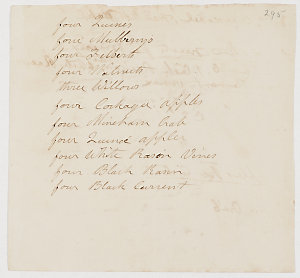 295
four Quinces
four Mulberrys
four Filberts
four Walnuts
three Willows
four Cockagee Apples
four Wineham Crab
four Quince apples
four White Raisin Vines
four Black Raisin
four Black Current